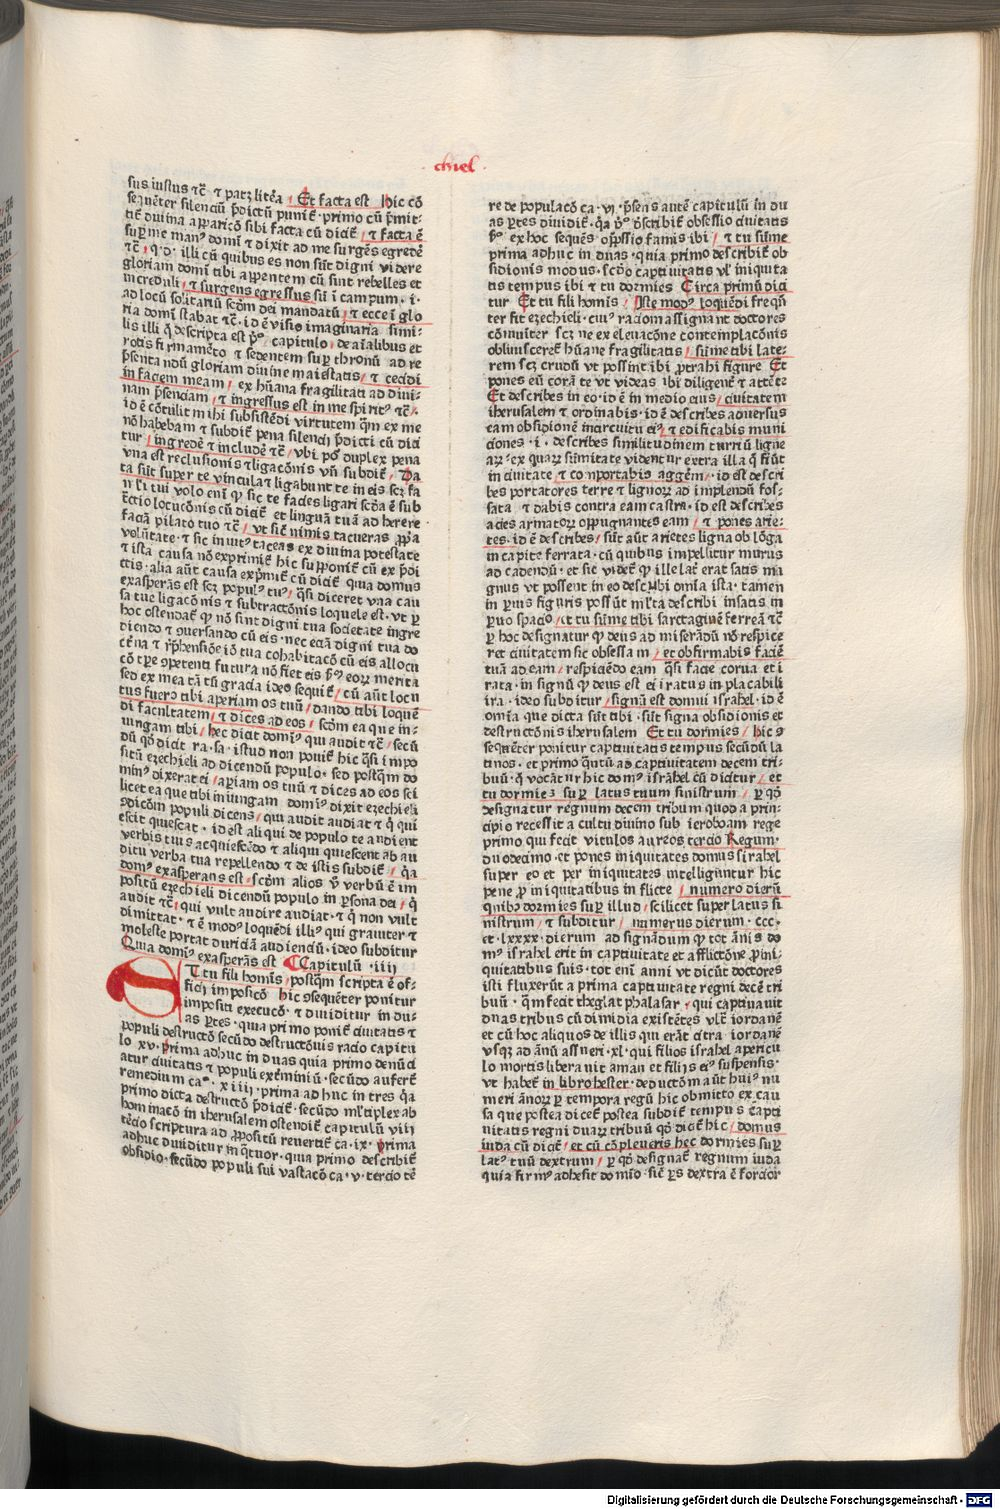 chiel
sus iustus tc̄ ⁊ patz lit̄ea / Et facta est Hic cō
sequēter silenciū p̄dictū punit᷒ primo cū p̄mit-
tit᷒ diuina apparicō sibi facta cū dicit᷒ / ⁊ facta ē
suꝑ me man⁹ domī ⁊ dixit ad me surgēs egredē
tc̄ · q·d· illi cū quibus es non sūt digni videre
gloriam domī tibi apparentem cū sint rebelles et
increduli / ⁊ surgens egressus sū ī campum · i·
ad locū solitariū scdm dei mandatū / ⁊ ecce ī glo
ria domī stabat tc̄ · id ē visio imaginaria simi-
lis illi q̄ descripta est pº capitulo / de aīalibus et
rotis firmamēto ⁊ sedentem suꝑ thronū ad re
p̄sentandū gloriam diuine maiestatis / ⁊ cecidi
in faciem meam / ex hūana fragilitati ad diui-
nam p̄senciam / ⁊ ingressus est in me spirit⁹ tc̄ ·
id ē cōtulit mihi subsistēdi virtutem q̄m ex me
nō habebam ⁊ subdit᷒ pena silencij p̄dicti cū dici
tur / ingredē ⁊ includē tc̄ / vbi pōt duplex pena
vna est reclusionis ⁊ ligacōnis vn̄ subdit᷒ / Da
ta sūt super te vincula ⁊ ligabunt te in eis scz fa
mlī tui volo enī ꝙ sic te facies ligari scda ē sub
t̄ctio locucōnis cū dicit᷒ et linguā tuā ad herere
faciā palato tuo tc̄ / vt sic̄ nimis tacueras ꝓpa
volūtate ⁊ sic inuit⁹ taceas ex diuina potestate
⁊ ista causa nō exprimit᷒ hic supponit᷒ cū ex p̄di
ctis · alia aūt causa exp̄mit᷒ cū dicit᷒ quia domus
exasperās est scz popul⁹ tu⁹ / q̄si diceret vna cau
sa tue ligacōnis ⁊ subtractōnis loquele est · vt ꝑ
hoc ostendat᷒ ꝙ nō sunt digni tua societate ingre
diendo ⁊ ꝯuersando cū eis · nec eciā digni tua do
ct̄na ⁊ rp̄hensiōe iō tua cohabitacō cū eis allocu
cō tꝑe ꝯpetenti futura nō fiet eis pº eorz merita
sed ex mea tā tū gracia ideo sequit᷒ / cū aūt locu
tus fuero tibi aperiam os tuū / dando tibi loquē
di facultatem / ⁊ dices ad eos / scdm ea que in-
iungam tibi / hec dicit domī⁹ qui audit tc̄ / secū
dū qd dicit ra·sa· istud non ponit᷒ hic q̄si impo
sitū ezechieli ad dicendū populo · sed postqm do
min⁹ dixerat ei / apriam os tuū ⁊ dices ad eos sci
licet ea que tibi iniungam domī⁹ dixit ezechieli
ꝯdicōm populi dicens / qui audit audiat ⁊ q̄ qui
escit quiescat · id est aliqui de populo te audient
verbis tuis acquiescēdo ⁊ aliqui quiescent ab au
ditu verba tua repellendo ⁊ de istis subdit᷒ / q̄a
dom⁹ exasperans est · scdm alios v̄ verbū ē im
positū ezechieli dicendū populo in ꝑsona dei / q̄
audit tc̄ / qui vult audire audiat · ⁊ q̄ non vult
dimittat · ⁊ ē mod⁹ loquēdi illi⁹ qui grauiter ⁊
moleste portat duriciā audienciū · ideo subditur
Quia domī⁹ exasperās est Capitulū · iiij
ET tu fili homīs / postqm scripta ē of-
ficij imposicō hic ꝯsequēter ponitur
impositi execucō · ⁊ diuiditur in du-
as ꝑtes · quia primo ponit᷒ ciuitatis ⁊
populi destructō secūdo destructōnis racio capitu
lo xv· prima adhuc in duas quia primo denūci
atur ciuitatis ⁊ populi ext̄miniū · secūdo aufert᷒
remedium ca⁰ · xiiij · prima adhuc in tres q̄a
primo dicta destructō p̄dicit᷒ · secūdo mltiplex ab
hominacō in iherusalem ostendit᷒ capitulū viij
tercio scriptura ad ꝓpositū reuertit᷒ ca·ix· prima
adhuc diuiditur in q̄tuor · quia primo describit᷒
obsidio · secūdo populi sui vastacō ca·v· tercio t̄e
re de populacō ca·vj· p̄sens autē capitulū in du
as ꝑtes diuidit᷒ · q̄a pº ꝓscribit᷒ obsessio ciuitatis
pº ex hoc sequēs opp̄ssio famis ibi / ⁊ tu sūme
prima adhuc in duas · quia primo describit᷒ ob
sidionis modus · scdo captiuitatis vl᷒ iniquita
tis tempus ibi ⁊ tu dormies Circa primū dici
tur Et tu fili homīs / Iste mod⁹ loquēdi freq̄n
ter fit ezechieli · cui⁹ raciom assignant doctores
cōmuniter scz ne ex eleuacōne contemplacōnis
obliuisceret᷒ hūane fragilitatis / sūme tibi late-
rem scz crudū vt possint ibi ꝓtrahi figure Et
pones eū corā te vt videas ibi diligent᷒ ⁊ attēte
Et describes in eo · id ē in medio eius / ciuitatem
iherusalem ⁊ ordinabis · id ē describes aduersus
eam obsidionē incircuitu ei⁹ / ⁊ edificabis muni
ciones · i· describes similitudinem turriū ligne
arz · ex quarz sūmitate videntur extra illa q̄ fiūt
in ciuitate ⁊ comportabis aggēm / id est descri
bes portatores terre ⁊ lignorz ad implendū fos-
sata ⁊ dabis contra eam castra · id est describes
acies armatorz oppugnantes eam / ⁊ pones arie-
tes · id ē describes / sūt aūt arietes ligna ob lōga
in capite ferrata · cū quibus impellitur murus
ad cadendū · et sic videt᷒ ꝙ ille lat᷒ erat satis ma
gnus vt possent in eo describi omīa ista · tamen
in ꝑuis figuris possūt mlta describi in satis in
ꝑuo spacio / et tu sūme tibi sartaginē ferreā tc̄
ꝑ hoc designatur ꝙ deus ad miserādū nō respice
ret ciuitatem sic obsessam / et obfirmabis faciē
tuā ad eam / respiciēdo eam q̄si facie torua et i
rata · in signū ꝙ deus est ei iratus in placabili
ira · ideo subditur / signū est domui israhel · id ē
omīa que dicta sūt tibi · sūt signa obsidionis et
destructōnis iherusalem Et tu dormies / hic ꝯ
sequēter ponitur captiuitatis tempus secūdū la
tinos · et primo q̄ntū ad captiuitatem decem tri-
buū · q̄ vocātur hic dom⁹ israhel cū dicitur / et
tu dormies suꝑ latus tuum sinistrum / ꝑ qd
designatur regnum decem tribum quod a prin-
cipio recessit a cultu diuino sub ieroboam rege
primo qui fecit vitulos aureos tercio Regum·
duodecimo · et pones iniquitates domus israhel
super eo et per iniquitates intelligūntur hic
pene ꝓ iniquitatibus in flicte / numero dierū
quibꝫ dormies suꝑ illud / scilicet super latus si
nistrum / ⁊ subditur / numerus dierum · ccc·
et · lxxxx · dierum ad signādum ꝙ tot ānis do
m⁹ israhel erit in captiuitate et afflictōne ꝓ ini-
quitatibus suis · tot enī anni vt dicūt doctores
isti fluxerūt a prima captiuitate regni decē tri
buū · q̄m fecit theglat phalasar / qui captiuauit
duas tribus cū dimidia existētes vlt᷒ iordanē
et cū hoc aliquos de illis qui erāt citra iordanē
vsqꝫ ad ānū assueri · xl· qui filios israhel a pericu
lo mortis liberauit aman et filijs ei⁹ suspensis ·
vt habet᷒ in libro hester · deductōm aūt hui⁹ nu
meri ānorz ꝑ tempora regū hic obmitto ex cau
sa que postea dicet᷒ postea subdit᷒ tempus capti
uitatis regni duarz tribuū qd dicit᷒ hic / domus
iuda cū dicit᷒ / et cū cōpleueris hec dormies suꝑ
lat⁹ tuū dextrum / ꝑ qd designat᷒ regnum iuda
quia firm⁹ adhesit domīo · sic̄ ꝑs dextra ē forcior
Digitalisierung gefördert durch die Deutsche Forschungsgemeinschaft - DFG